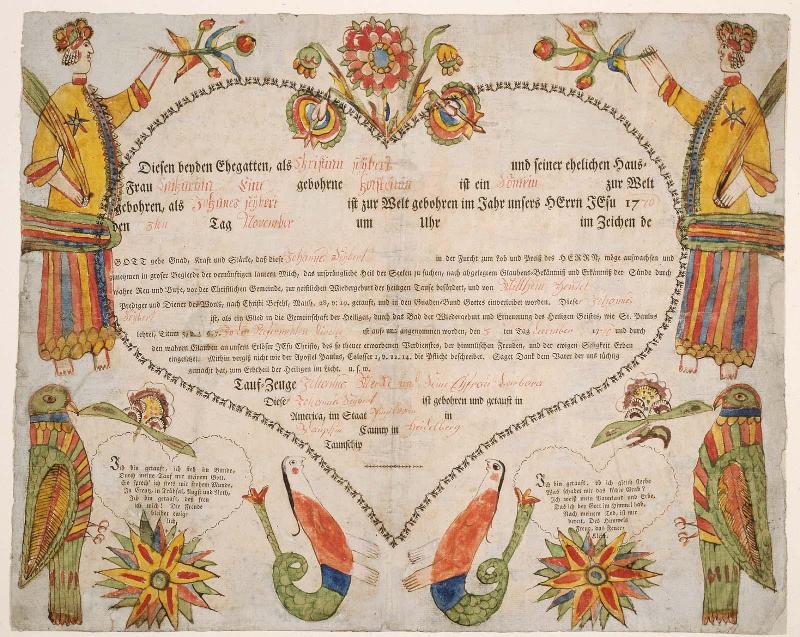 Diesen beyden Ehegatten, als Christian seybert und seiner ehelichen Haus-
Frau Catharina Eine gebohrne ist ein Söhnlein zur Welt
gebohren, als Johannes seybert ist zur Welt gebohren im Jahr unsers HErrn JEsu 1770
den 3ten Tag November um Uhr im Zeichen de
GOTT gebe Gnad, Kraft und Stärke, daß diese Johannes Seybert in der Furcht zum Lob und Preiß des HERRN, möge aufwachsen und
zunehmen in groser Begierde der vernünftigen lautern Milch, das ursprüngliche Heil der Seelen zu suchen, nach abgelegtem Glaubens-Bekäntniß und Erkäntniß der Sünde durch
wahre Reu und Buse, vor der Christlichen Gemeinde, zur geistlichen Wiedergeburt der heiligen Taufe befördert, und von Willhelm Hendel
Prediger und Diener des Worts, nach Christi Befehl, Matth. 28, v. 19. getauft, und in den Gnaden-Bund Gottes einverleibet worden. Diese Johannes
Seybert ist, als ein Glied in die Gemeinschaft der Heiligen, durch das Bad der Wiedergeburt und Erneuung des Heiligen Geistes, wie St. Paulus
lehret, Titum 3, v. ist auf- und angenommen worden, den 5 ten Tag December 1770 und durch
den wahren Glauben an unsern Erlöser JEsu Christo, des so theuer erworbenen Verdienstes, der himmlischen Freuden, und der ewigen Seligkeit Erben
eingesetzt. Mithin vergiß nicht wie der Apostel Paulus, Colosser 1, v. 12. 14. die Pflicht beschreibet. Saget Dank dem Vater der uns tüchtig
gemacht hat, zum Erbtheil der Heiligen im Licht. u. s. w.
Tauf-Zeuge Johannes und Seine Ehfrau Barbara
Diese Johannes Seybert ist gebohren und getauft in
America, im Staat in
Dauphin Caunty in Heidelberg
Taunschip
Ich bin getauft, ich steh im Bunde,
Durch meine Tauf mit meinem Gott.
So sprech' ich stets mit frohem Munde,
In Creutz, in Trübsal, Angst und Noth,
Ich bin getauft, deß freu
ich mich! Die Freude
bleibet ewig-
lich.
Ich bin getauft, ob ich gleich sterbe
Was schadet mir das kühle Grab?
Ich weiß mein Vaterland und Erbe,
Das ich bey Gott im Himmel hab,
Nach meinem Tod, ist mir
bereit, Des Himmels
Freud, das Feuer-
Kleid.